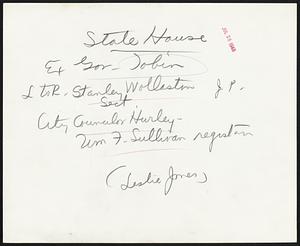 State House
JUL 28 1948
Ex Gov - Tobin
L to R - Stanley Wollaston J. P.
Sect
City Councilor Hurley -
Wm F. Sullivan registrar
(Leslie Jones)